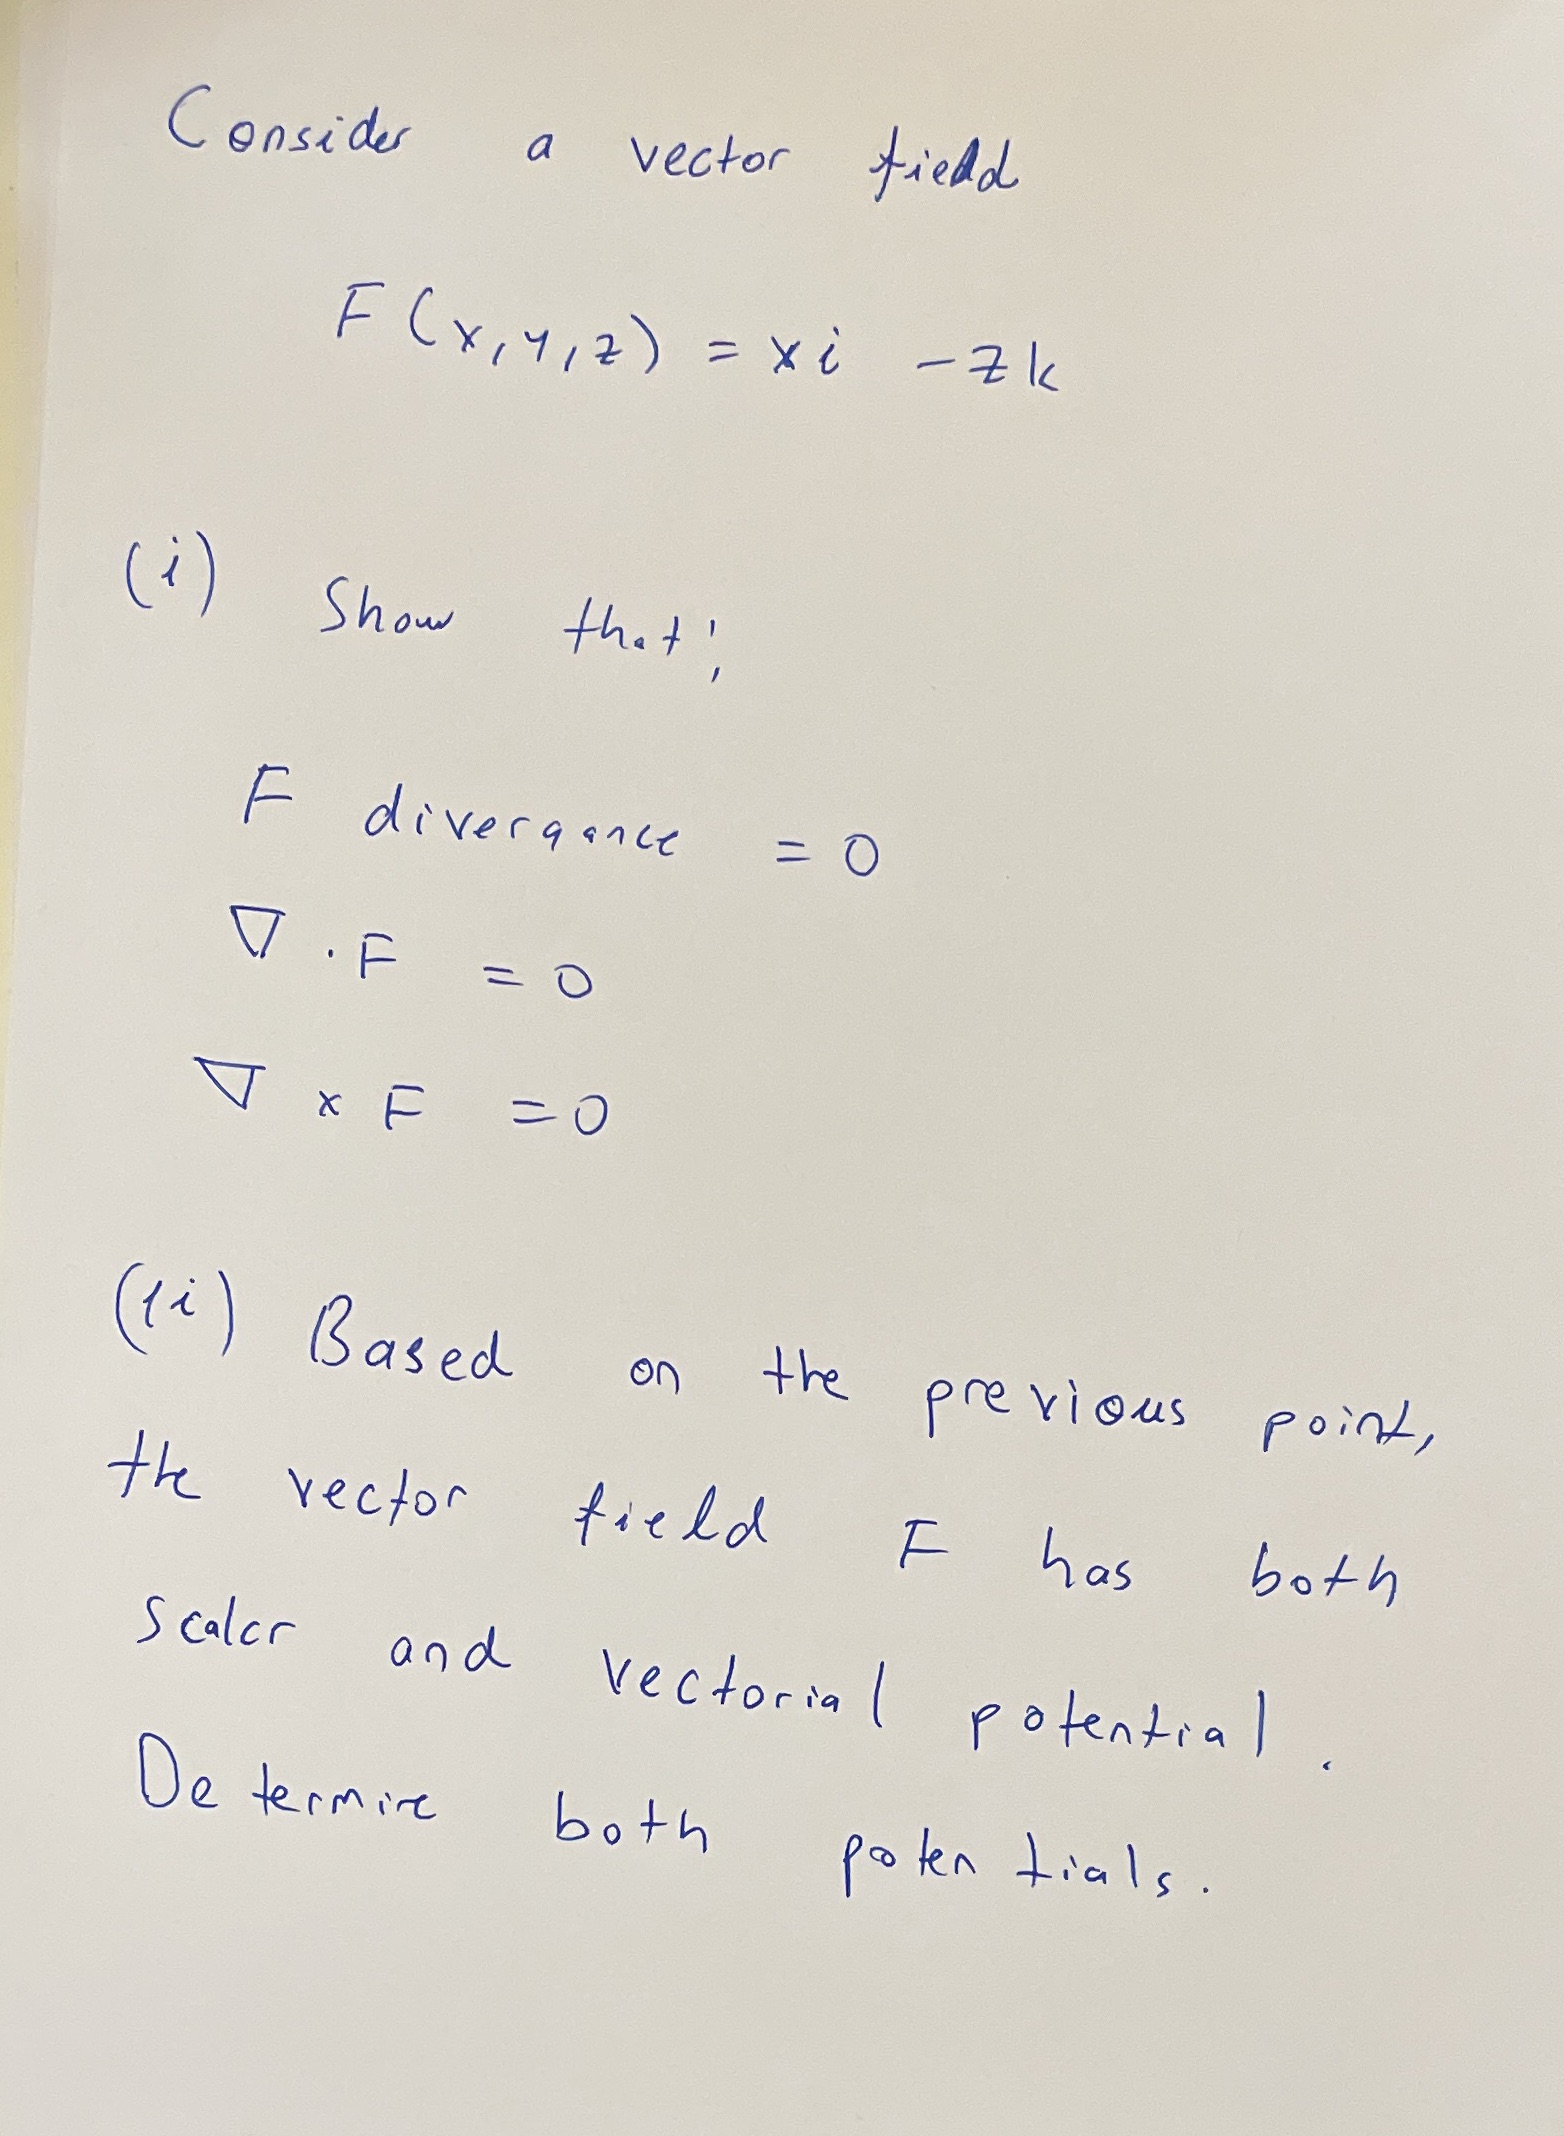 Consider a vector field
F(x, y, z) = xi - zk
(i) Show that:
F divergance = 0
∇ · F = 0
∇ × F = 0
(ii) Based on the previous point,
the vector field F has both
scalar and vectorial potential.
Determine both potentials.